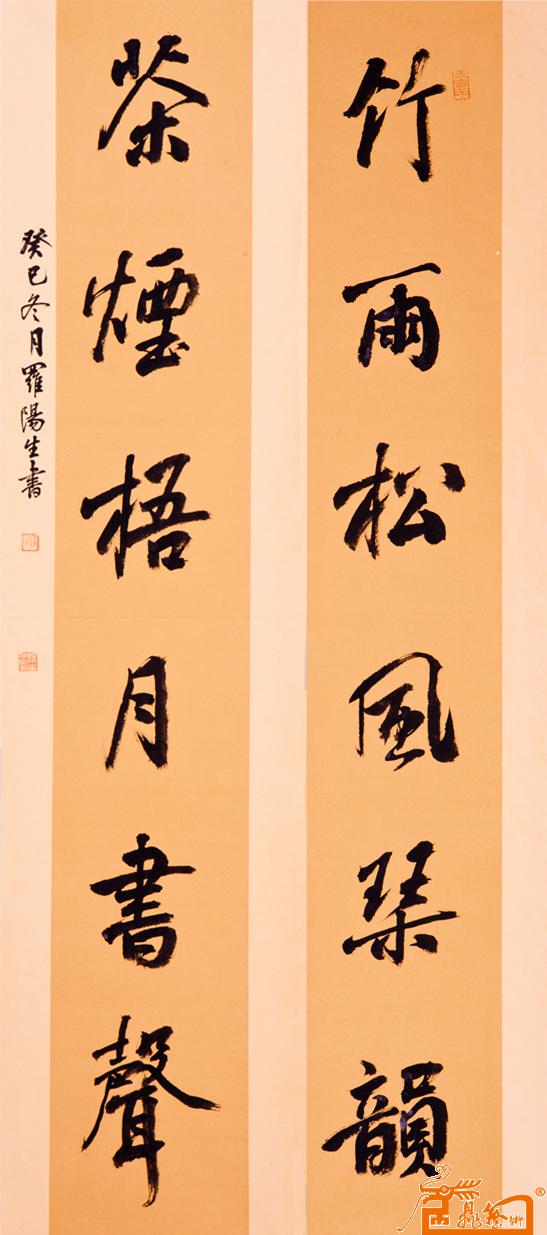 竹雨松風琴韻
茶煙梧月書聲
癸巳冬月羅陽生書